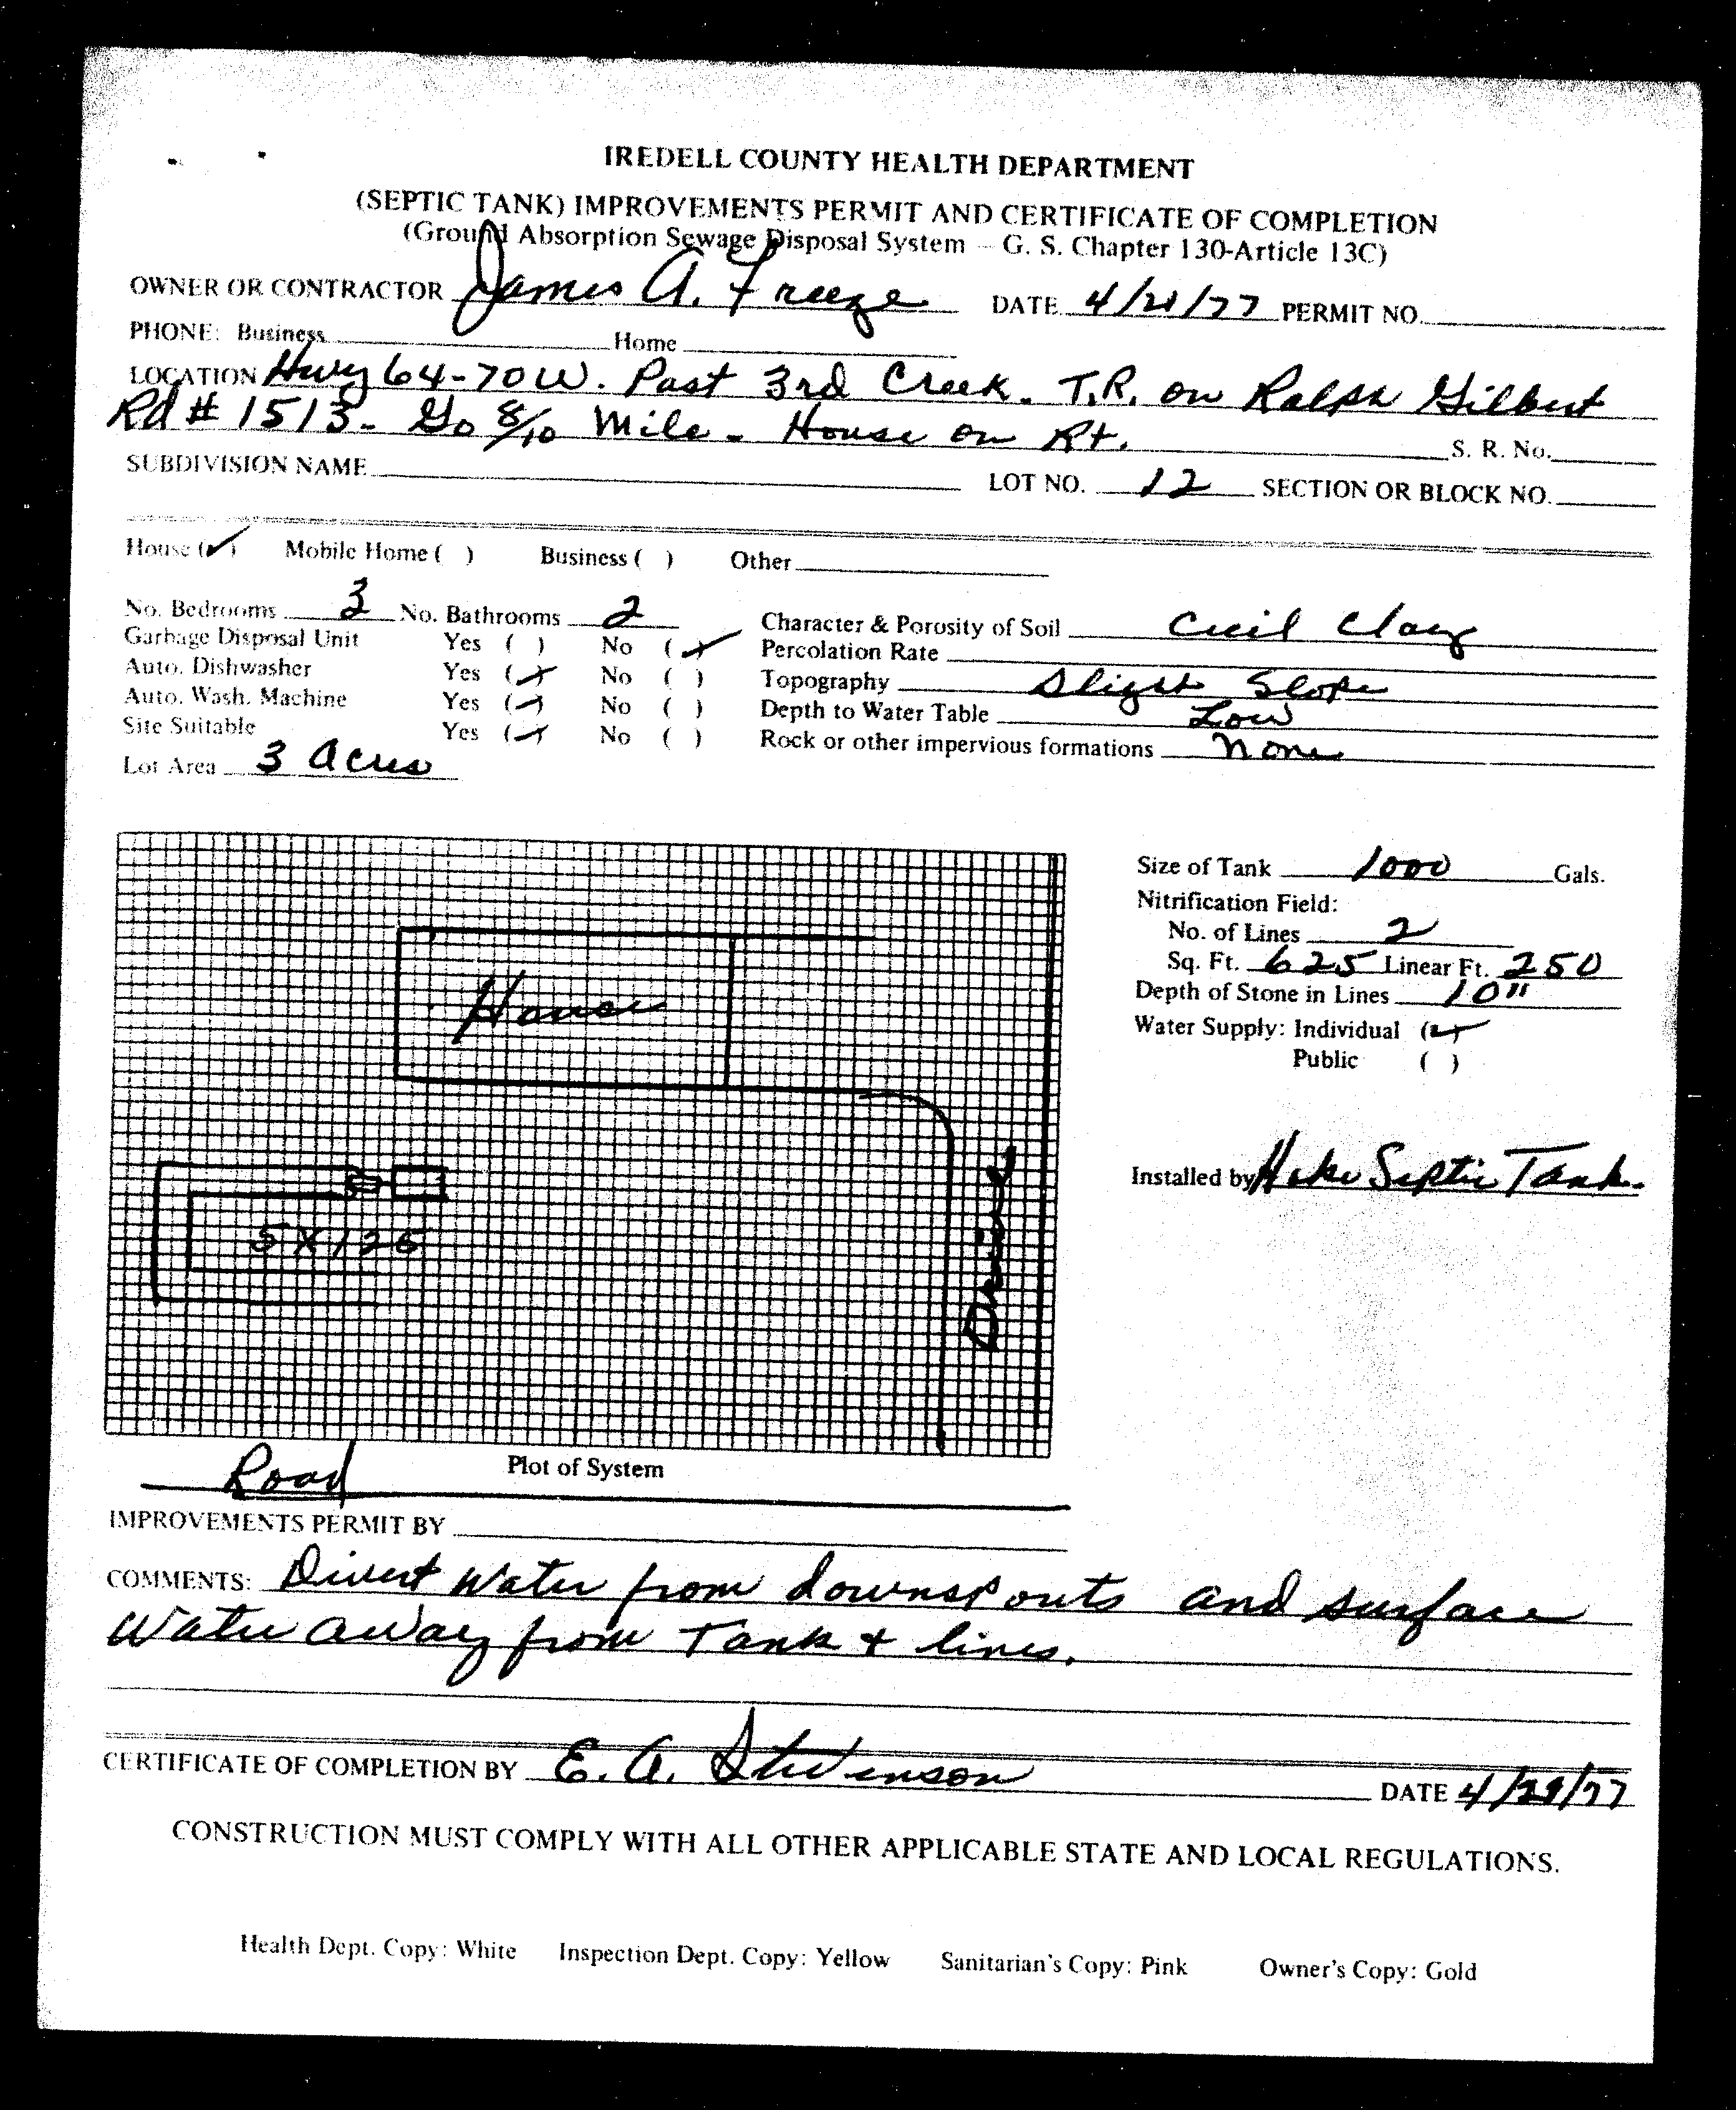 IREDELL COUNTY HEALTH DEPARTMENT
(SEPTIC TANK) IMPROVEMENTS PERMIT AND CERTIFICATE OF COMPLETION
(Ground Absorption Sewage Disposal System — G. S. Chapter 130-Article 13C)
OWNER OR CONTRACTOR James A. Freeze DATE 4/21/77 PERMIT NO.
PHONE: Business Home
LOCATION Hwy 64-70 W. Past 3rd Creek. T.R. on Ralph Gilbert
Rd # 1513- Go 8/10 Mile - House on Rt. S. R. No.
SUBDIVISION NAME LOT NO. 12 SECTION OR BLOCK NO.
House (✓) Mobile Home ( ) Business ( ) Other
No. Bedrooms 3 No. Bathrooms 2 Character & Porosity of Soil Cecil Clay
Garbage Disposal Unit Yes ( ) No (✓) Percolation Rate
Auto. Dishwasher Yes (✓) No ( ) Topography Slight Slope
Auto. Wash. Machine Yes (✓) No ( ) Depth to Water Table Low
Site Suitable Yes (✓) No ( ) Rock or other impervious formations None
Lot Area 3 Acres
Size of Tank 1000 Gals.
Nitrification Field:
No. of Lines 2
Sq. Ft. 625 Linear Ft. 250
Depth of Stone in Lines 10"
Water Supply: Individual (✓)
Public ( )
House
Installed by Septic Tank.
5 X 125
Drive
Road
Plot of System
IMPROVEMENTS PERMIT BY
COMMENTS: Divert water from downspouts and surface
water away from Tank + lines.
CERTIFICATE OF COMPLETION BY E. A. Stevenson DATE 4/29/77
CONSTRUCTION MUST COMPLY WITH ALL OTHER APPLICABLE STATE AND LOCAL REGULATIONS.
Health Dept. Copy: White Inspection Dept. Copy: Yellow Sanitarian's Copy: Pink Owner's Copy: Gold